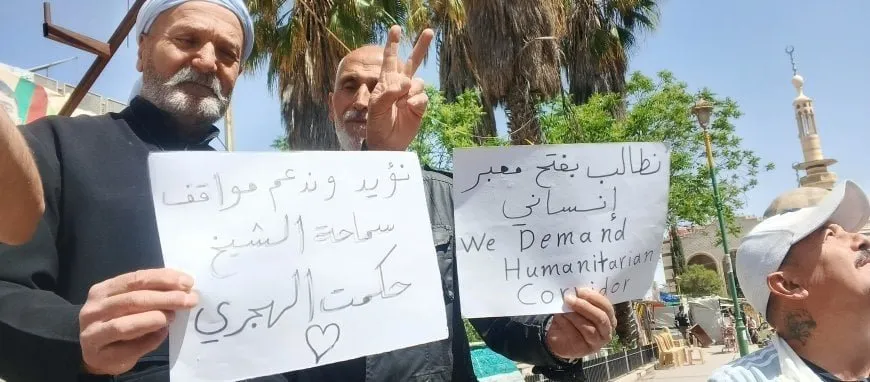 نؤيد وندعم مواقف
سماحة الشيخ
حكمت الهجري
نطالب بفتح معبر
إنساني
We Demand
Humanitarian
Corridor